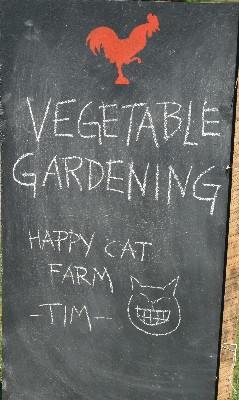 VEGETABLE
GARDENING
HAPPY CAT
FARM
-TIM-